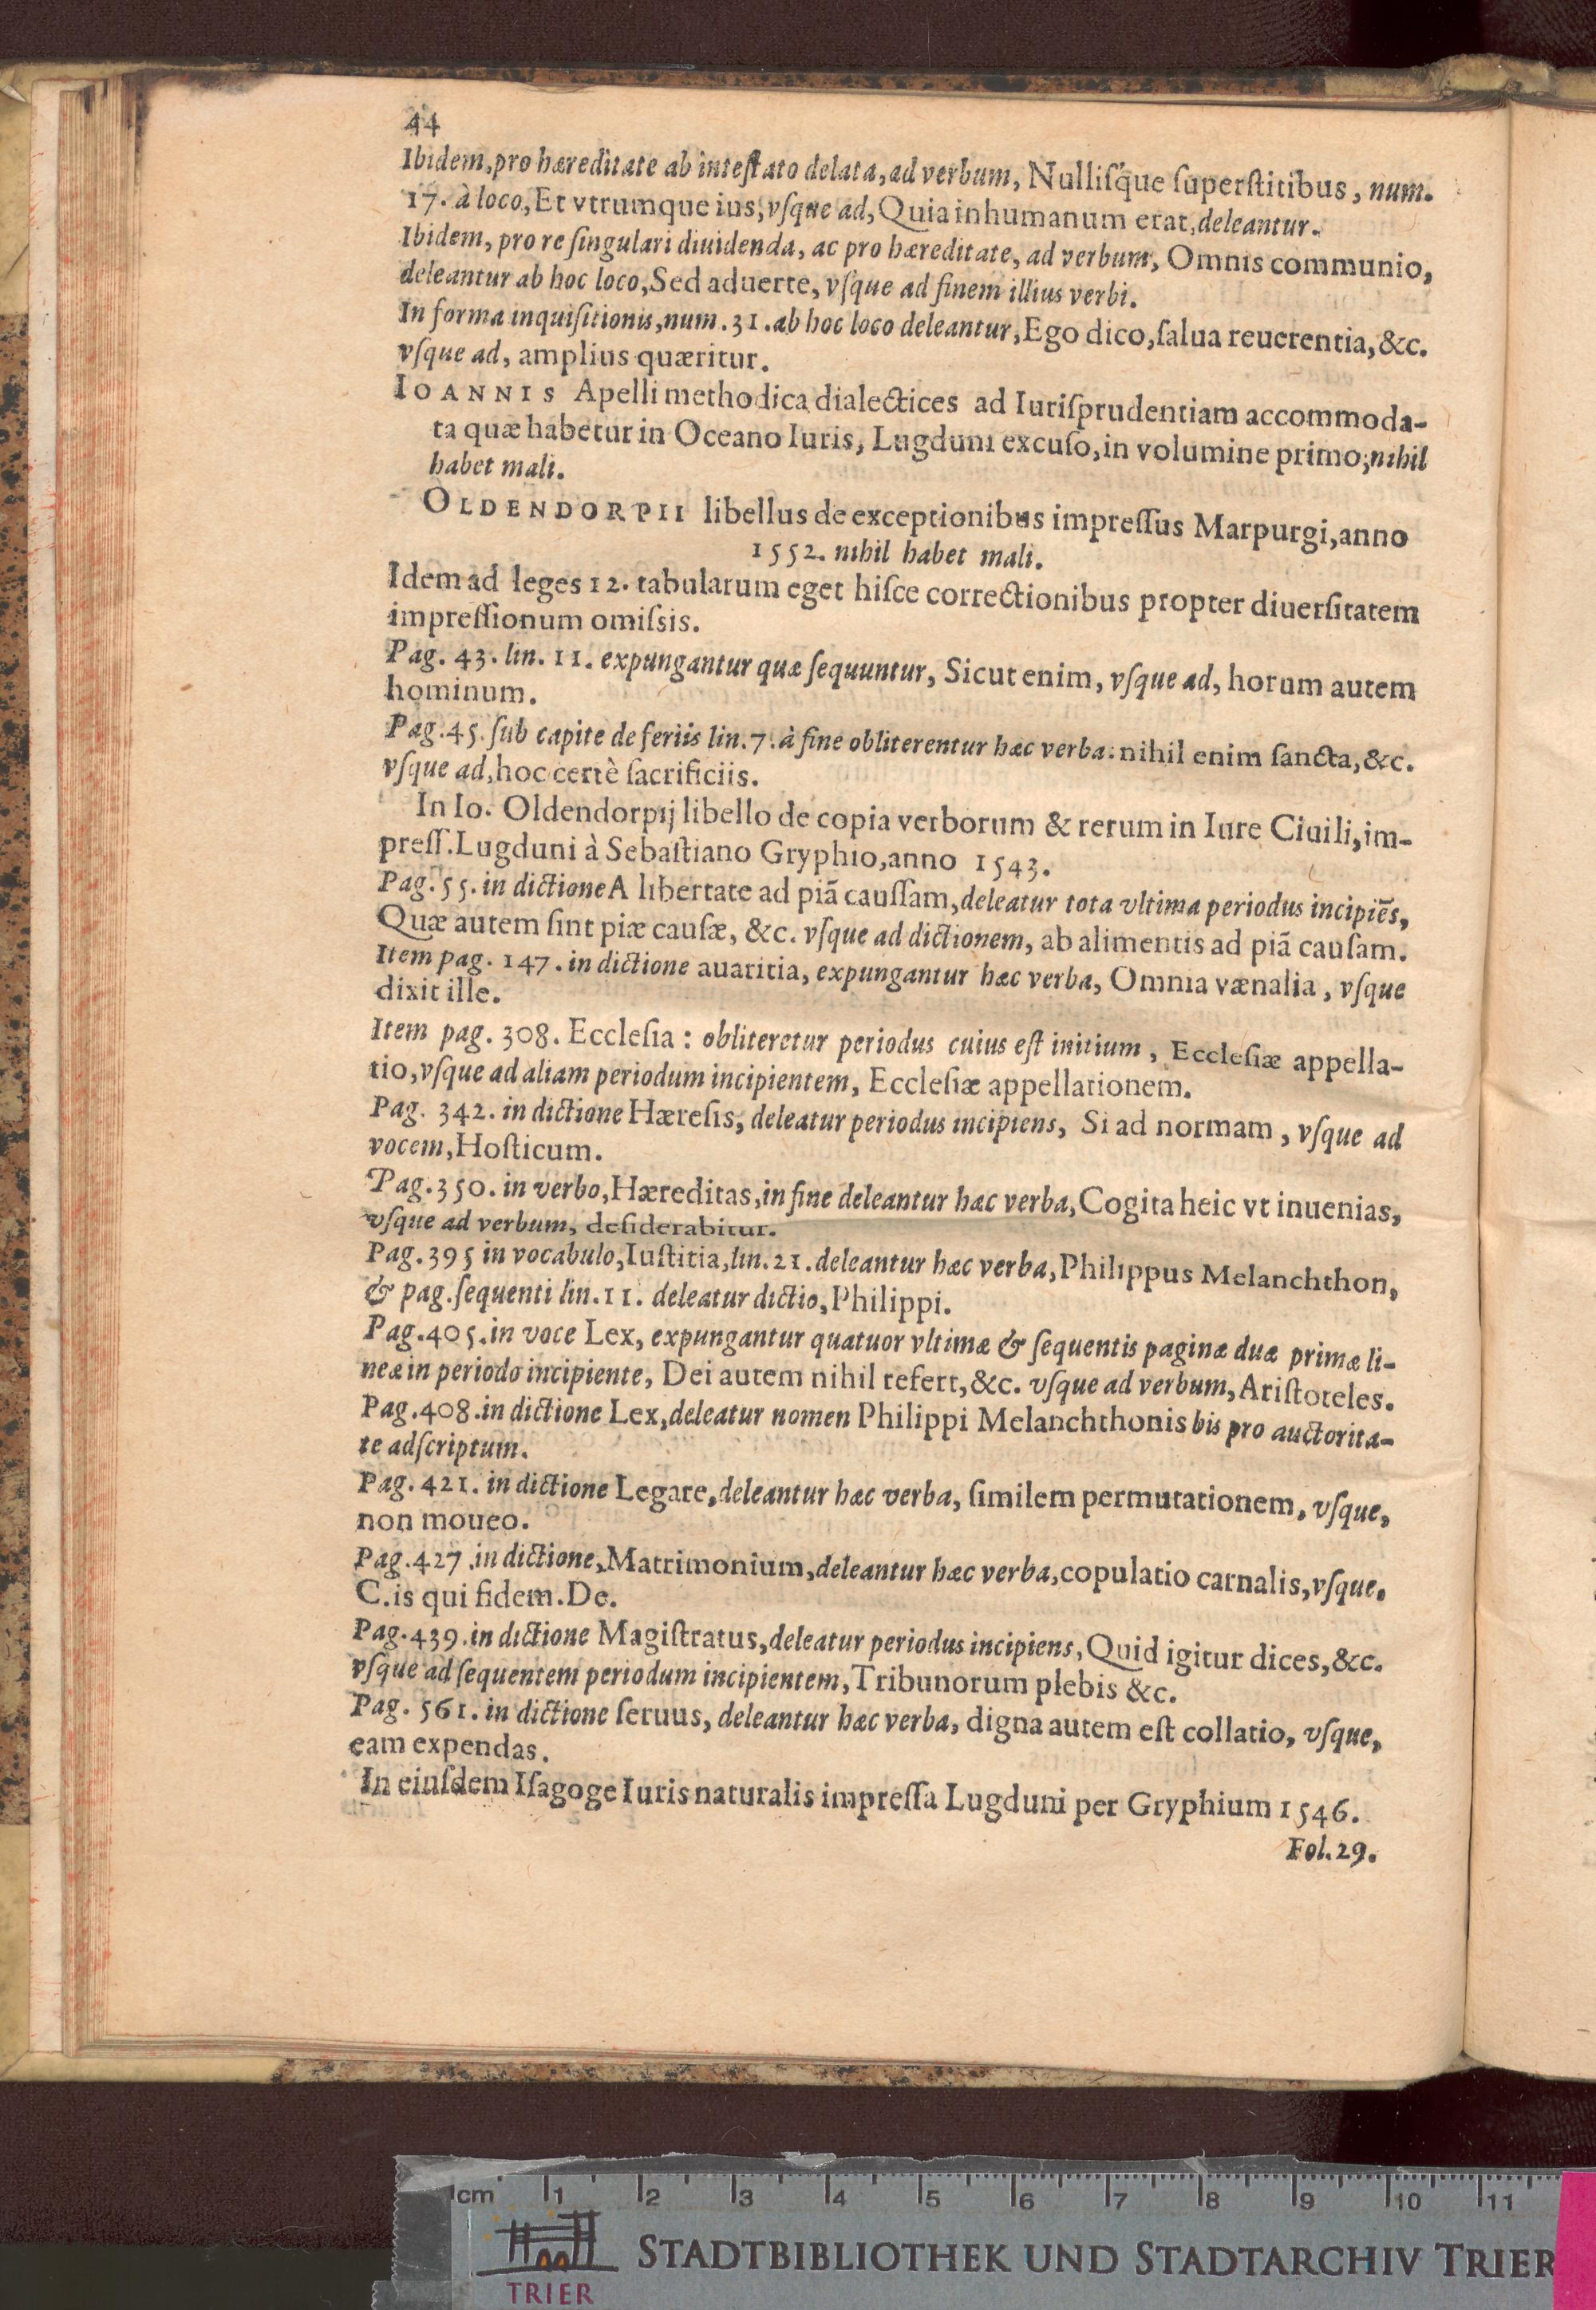 44
Ibidem, pro hæreditate ab inteſtato delata, ad verbum, Nulliſq́ue ſuperſtitibus, num.
17. à loco, Et vtrumque ius, vſque ad, Quia inhumanum erat, deleantur.
Ibidem, pro re ſingulari diuidenda, ac pro hæreditate, ad verbum, Omnis communio,
deleantur ab hoc loco, Sed aduerte, vſque ad finem illius verbi.
In forma inquiſitionis, num. 31. ab hoc loco deleantur, Ego dico, ſalua reuerentia, &c.
vſque ad, amplius quæritur.
IOANNIS Apelli methodica dialectices ad Iuriſprudentiam accommoda-
ta quæ habetur in Oceano Iuris, Lugduni excuſo, in volumine primo, nihil
habet mali.
OLDENDORPII libellus de exceptionibus impreſſus Marpurgi, anno
1552. nihil habet mali.
Idem ad leges 12. tabularum eget hiſce correctionibus propter diuerſitatem
impreſſionum omiſsis.
Pag. 43. lin. 11. expungantur quæ ſequuntur, Sicut enim, vſque ad, horum autem
hominum.
Pag. 45. ſub capite de feriis lin. 7. à fine obliterentur hæc verba: nihil enim ſancta, &c.
vſque ad, hoc certè ſacrificiis.
In Io. Oldendorpij libello de copia verborum & rerum in Iure Ciuili, im-
preſſ. Lugduni à Sebaſtiano Gryphio, anno 1543.
Pag. 55. in dictione A libertate ad piã cauſſam, deleatur tota vltima periodus incipiẽs,
Quæ autem ſint piæ cauſæ, &c. vſque ad dictionem, ab alimentis ad piã cauſam.
Item pag. 147. in dictione auaritia, expungantur hæc verba, Omnia vænalia, vſque
dixit ille.
Item pag. 308. Eccleſia: obliteretur periodus cuius eſt initium, Eccleſiæ appella-
tio, vſque ad aliam periodum incipientem, Eccleſiæ appellationem.
Pag. 342. in dictione Hæreſis, deleatur periodus incipiens, Si ad normam, vſque ad
vocem, Hoſticum.
Pag. 350. in verbo, Hæreditas, in fine deleantur hæc verba, Cogita heic vt inuenias,
vſque ad verbum, deſiderabitur.
Pag. 395 in vocabulo, Iuſtitia, lin. 21. deleantur hæc verba, Philippus Melanchthon,
& pag. ſequenti lin. 11. deleatur dictio, Philippi.
Pag. 405. in voce Lex, expungantur quatuor vltimæ & ſequentis paginæ duæ primæ li-
neæ in periodo incipiente, Dei autem nihil refert, &c. vſque ad verbum, Ariſtoteles.
Pag. 408. in dictione Lex, deleatur nomen Philippi Melanchthonis bis pro auctorita-
te adſcriptum.
Pag. 421. in dictione Legare, deleantur hæc verba, ſimilem permutationem, vſque,
non moueo.
Pag. 427 in dictione, Matrimonium, deleantur hæc verba, copulatio carnalis, vſque.
C. is qui fidem. De.
Pag. 439. in dictione Magiſtratus, deleatur periodus incipiens, Quid igitur dices, &c.
vſque ad ſequentem periodum incipientem, Tribunorum plebis &c.
Pag. 561. in dictione ſeruus, deleantur hæc verba, digna autem eſt collatio, vſque,
eam expendas.
In eiuſdem Iſagoge Iuris naturalis impreſſa Lugduni per Gryphium 1546.
Fol. 29.
cm 1 2 3 4 5 6 7 8 9 10 11
STADTBIBLIOTHEK UND STADTARCHIV TRIER
TRIER